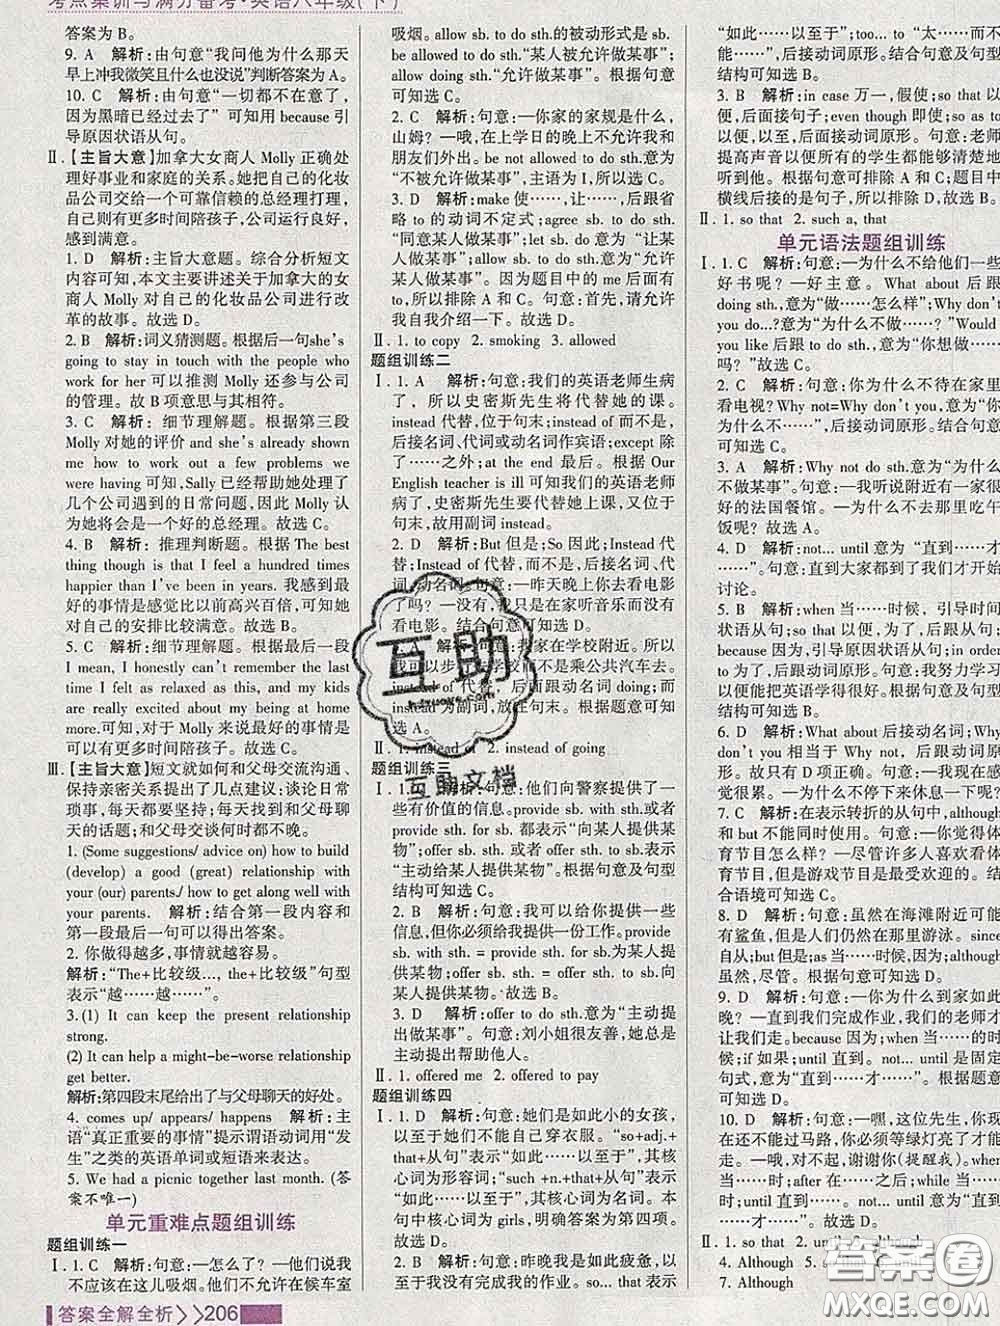 考点集训与满分备考·英语八年级(下)
答案为 B。
9. A 解析:由句意“我问他为什么那天
早上冲我微笑且什么也没说”判断答案为 A。
10. C 解析:由句意“一切都不在意了,
因为黑暗已经过去了”可知用 because 引
导原因状语从句。
Ⅱ.【主旨大意】加拿大女商人 Molly 正确处
理好事业和家庭的关系。她把自己的化妆
品公司交给一个可靠信赖的总经理打理,
自己有更多时间陪孩子,公司运行良好,
感到满意。
1. D 解析:主旨大意题。综合分析短文
内容可知,本文主要讲述关于加拿大的女
商人 Molly 对自己的化妆品公司进行改
革的故事。故选 D。
2. B 解析:词义猜测题。根据后一句 she's
going to stay in touch with the people who
work for her 可以推测 Molly 还参与公司
的管理。故 B 项意思与其一致相符。
3. C 解析:细节理解题。根据第三段
Molly 对她的评价 and she's already shown
me how to work out a few problems we
were having 可知,Sally 已经帮助她处理了
几个公司遇到的日常问题,因此 Molly 认
为她将会是一个好的总经理。故选 C。
4. B 解析:推理判断题。根据 The best
thing though is that I feel a hundred times
happier than I've been in years. 我感到最
美好的事情是感觉比以前高兴百倍,因此她
对自己的安排比较满意。故选 B。
5. C 解析:细节理解题。根据最后一段
I mean, I honestly can't remember the last
time I felt as relaxed as this, and my kids
are really excited about my being at home
more.可知,对于 Molly 来说最好的事情是
可以有更多时间陪孩子。故选 C。
Ⅲ.【主旨大意】短文就如何和父母交流沟通、
保持亲密关系提出了几点建议;谈论日常
琐事,每天都要坚持;与父母和孩子聊天
聊天的话题;和父母交谈何时都不晚。
1. (Some suggestions/ advice on) how to build
(develop) a good (great) relationship with
your (our) parents./ how to get along well with
your parents. 解析:结合第一段内容和
第一段最后一句可以得出答案。
2. 你做得越多,事情就越容易。
解析:"The+比较级…, the+比较级"句型
表示“越……越……”。
3.(1) It can keep the present relationship
strong.
(2) It can help a might-be-worse relationship
get better.
解析:第四段末尾给出了与父母聊天的好处。
4. comes up/ appears/ happens 解析:主
语“真正重要的事情”提示谓语动词用“发
生”之类的英语单词或短语来表达。
5. We had a picnic together last month. (答
案不唯一)
单元重难点题组训练
题组训练一
Ⅰ. 1. C 解析:句意:—怎么了?—他们说我
不应该在这儿吸烟。他们不允许在候车室
答案全解全析>>206
吸烟。allow sb. to do sth.的被动形式是 sb.
be allowed to do sth."某人被允许做某事";
allow doing sth."允许做某事"。根据句意
可知选 C。
2. C 解析:句意:—你家的家规是什么,
山姆? —哦,在上学日的晚上不允许我和
朋友们外出。be not allowed to do sth.意为
"不被允许做某事",主语为 I,所以选 C。
3. D 解析:make 使……,让……,后跟省
略 to 的动词不定式;agree sb. to do sth.
"同意某人做某事";let sb. do 意为"让某
人做某事";allow sb. to do sth."允许某
人做某事"。因为题目中的 me 后面有
to,所以排除 A 和 C。句意:首先,请允许
我自我介绍一下。故选 D。
Ⅱ. 1. to copy 2. smoking 3. allowed
题组训练二
Ⅰ. 1. A 解析:句意:我们的英语老师生病
了,所以史密斯先生将代替她的课。
instead 代替,位于句末;instead of 而不是,
后接名词、代词或动名词作宾语;except 除
了……之外;at the end 最后。根据 Our
English teacher is ill 可知我们的英语老师
病了,史密斯先生要代替她上课,又位于
句末,故用副词 instead。
2. D 解析:But 但是;So 因此;Instead 代
替;Instead of 代替,后面接名词、代
词、动名词。句意:—昨天晚上你去看电影
了吗? —没有,我只是在家听音乐而没有
看电影。结合句意可知选 D。
家在学校附近。所以
我可以步行去学校而不是乘公共汽车去。
instead of 代替,后面跟动名词 doing;而
instead 为副词,放在句末。根据题意可知
选 A。
Ⅱ. 1. instead of 2. instead of going
题组训练三
Ⅰ. 1. C 解析:句意:他们向警察提供了一
些有价值的信息。provide sb. with sth.或者
provide sth. for sb. 都表示“向某人提供某
物”;offer sb. sth.或者 offer sth. to sb.表示
“主动给某人提供某物”。根据句意及句型
结构可知选 C。
2. B 解析:句意:我可以给你提供一些
信息,但你必须给我提供一份工作。provide
sb. with sth. = provide sth. for sb.为某人提
供某物。offer sb. sth. = offer sth. to sb.向
某人提供某物。故选 B。
3. D 解析:offer to do sth.意为“主动提
出做某事”。句意:刘小姐很友善,她总是
主动提出帮助他人。
Ⅱ. 1. offered me 2. offered to pay
题组训练四
Ⅰ. 1. D 解析:句意:她们是如此小的女孩,
以至于她们不能自己穿衣服。"so+adj.+
that+从句"表示"如此……以至于",其核
心词为形容词;"such +n.+that+从句"表示
"如此……以至于",其核心词为名词。本
句中核心词为 girls,明确答案为第四项。
2. C 解析:句意:昨晚我是如此疲惫,以
至于没有完成我的作业。so... that...表示
"如此……以至于";too... to "太……而不
能",后接动词原形。结合句意及句型
结构可知选 C。
3. B 解析:in case 万一,假使;so that 以
便,后接句子;even though 即使;so as to
以便,以至,后面接动词原形。句意:老师
提高声音以便所有的学生都能够清楚地
听到他。根据句意可排除 A 和 C;题目中
横线后接的为句子,所以排除 D。故选 B。
Ⅱ. 1. so that 2. such a, that
单元语法题组训练
Ⅰ. 1. C 解析:句意:—为什么不给他们一些
好书呢? —好主意。What about 后跟
doing sth.,意为“做……怎么样”;Why don't
you do...?意为“为什么不做……”;Would
you like 后跟 to do sth.,意为“你想做……
吗? ”故选 C。
2. C 解析:句意:你为什么不待在家里
看电视? Why not=Why don't you,意为“
为什么不……”。根据句型结构和句意
可知选 C。
3. A 解析:Why not do sth.意为“为什么
不做某事”。句意:—我听说附近有一家很
好的法国餐馆。—为什么不去那里吃午
饭呢? 故选 A。
4. D 解析:not... until 意为“直到……才
……”。句意:直到大家都到了我们才开始
讨论。
5. B 解析:when 当……时候,引导时间
状语从句;so that 以便,为了,后跟从句;
because 因为,引导原因状语从句;in order
to 为了,后跟动词原形。句意:我努力学习
以便能把英语学得很好。根据句意及句型
结构可知选 B。
6. D 解析:What about 后接动词; Why
don't you 相当于 Why not,后接动词原
形。故只有 D 项正确。句意:—我现在感
觉很累。—为什么不停下来休息一下呢?
7. C 解析:在表示转折的从句中,although
和 but 不能同时使用。句意:—你觉得体
育节目怎么样? —尽管许多人喜欢看体
育节目,但是游戏节目是最受欢迎的。结
合语境可知选 C。
8. D 解析:句意:虽然在海滩附近可能
有鲨鱼,但是人们仍然在那里游泳。since
自从;as 当……时候,因为;although
虽然,尽管。结合句意可知选 D。
9. D 解析:句意:—你为什么到家如此
晚? —直到我们完成作业,我们的老师才
让我们走。because 因为;when 当……的时
候;if 如果;until 直到。not... until 是固定
句式,意为“直到……才……”。根据题意
可知选 D。
10. D 解析:句意:—嘿,这位先生,你现
在不能过马路,你必须等绿灯亮了才能
走。—哦,对不起,谢谢你(提醒我)。when 当……
时;after 在……之后;while 当……
时;until 直到。not... until 意为“直到……
才……”。故选 D。
Ⅱ. 1. so that 2. until 3. although
4. Although
7. Although
互助
互助文档
答案圈
MXQE.COM